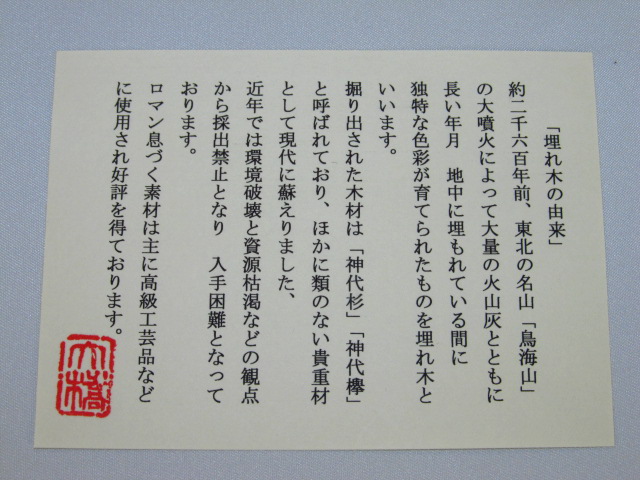 「埋れ木の由来」
約二千六百年前、東北の名山「鳥海山」
の大噴火によって大量の火山灰とともに
長い年月　地中に埋もれている間に
独特な色彩が育てられたものを埋れ木と
いいます。
掘り出された木材は「神代杉」「神代欅」
と呼ばれており、ほかに類のない貴重材
として現代に蘇えりました、
近年では環境破壊と資源枯渇などの観点
から採出禁止となり　入手困難となって
おります。
ロマン息づく素材は主に高級工芸品など
に使用され好評を得ております。